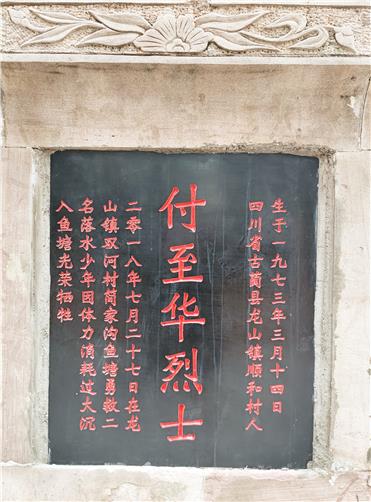 生于一九七三年三月十四日
四川省古蔺县龙山镇顺和村人
付至华烈士
二零一八年七月二十七日在龙
山镇双河村简家沟鱼塘勇救二
名落水少年因体力消耗过大沉
入鱼塘光荣牺牲